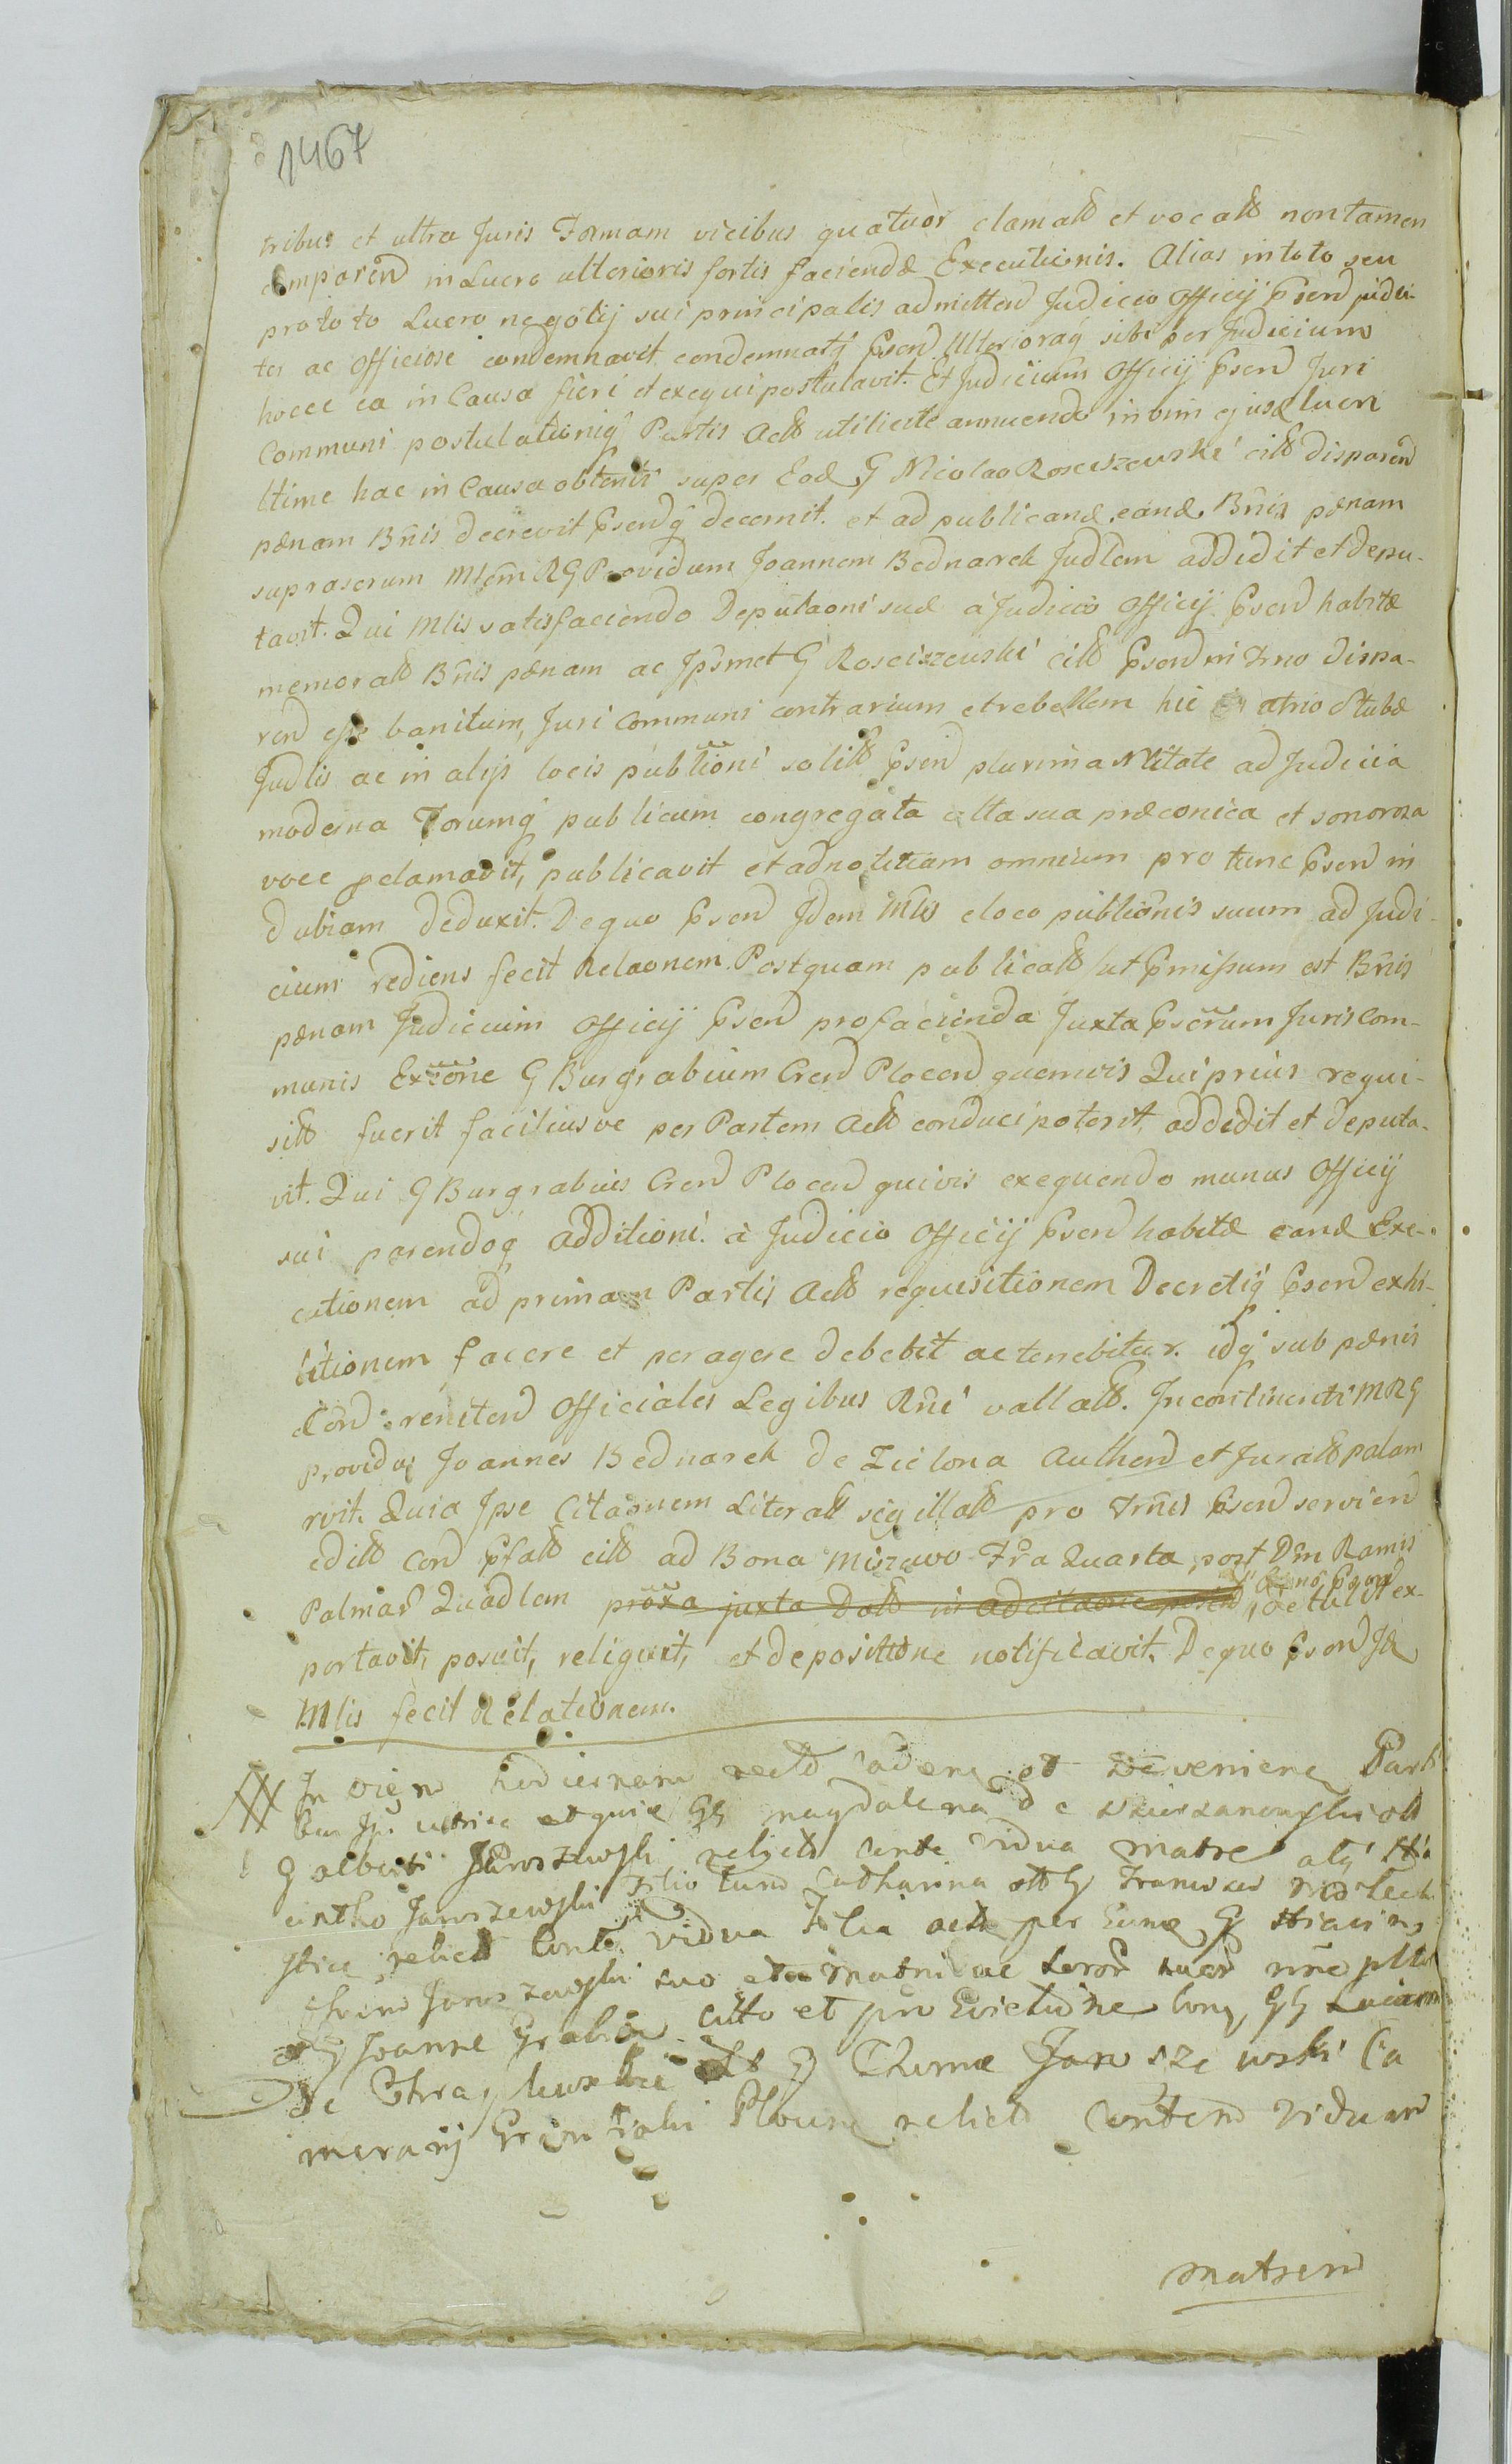 1467
tribus et ultra Juris Formam vicibus quatuor clamatt et vocatt non tamen
comparen in Lucro ulterioris fortis faciendæ Executionis. Alias in toto seu
pro toto Lucro negotij sui principalis admitten Judicio Officij Psen judiali-
ter ac officiose condemnavit condemnatq Psen Ulterioraq sibi per Judicium
hocce ea in Causa fieri et exequi postulavit. Et Judicium Officij Psen Juri
Communi postulationiq Partis Actt utilicite annuendo in vim ejusd lucri
ltime hac in Causa obtenti super Eod G Nicolao Rosciszewski citt disparen
pænam Bnis decrevit Psenq decernit. et ad publicand eand Bnis pænam
suprascrum Mlem RG Providum Joannem Bednarek Judlem addidit et depu-
tavit. Qui Mlis satisfaciendo Deputaoni suæ a Judicio Officij Psen habitæ
memoratt Bnis pænam ac Ipsmet G Rosciszewski citt Psen in Trno dispa-
ren esse banitum, Juri Communi contrarium et rebellem hic atrio Stubæ
Judlis ac in alijs locis publioni solitt Psen plurima Nlitate ad Judicia
moderna Forumq publicum congregata alta sua præconica et sonorosa
voce pclamavit, publicavit et ad notitiam omnium pro tunc Psen in
dubiam deduxit. De quo Psen Idem Mlis e loco publionis suum ad Judi-
cium rediens fecit Relaonem. Postquam publicatt ut Pmissum est Bnis
pænam Judicium Officij Psen pro facienda Juxta Pscrum Juris Com-
munis Exeone G Burgrabium Cren Plocen quemvis Qui prius requi-
sitt fuerit faciliusve per Partem Actt conduci poterit, addidit et deputa-
vit. Qui G Burgrabius Cren Plocen quivis exequendo munus Officij
sui parendoq additioni a Judicio Officij Psen habitæ eand Exe-
cutionem ad primam Partis Actt requisitionem Decretiq Psen exhi-
bitionem facere et peragere debebit ac tenebitur. idq sub pænis
Con reniten Officiales Legibus Rni vallatt. In continenti MRG
Providus Joannes Bednarek de Zielona Authen et Juratt palam
rvit. Quia Ipse Citaonem Literatt sigillatt pro Trnis Psen servien
editt Con Pfatt citt ad Bona Miszewo Fra Quarta post Dm Ramis
Palmar Quadlem proxa juxta Datt in ad citaone Psen detulit ex-
portavit, posuit, reliquit, et depositione notificavit. De quo Psen Id
Mlis fecit Relationem.
In hodiernam Parti
bus Ip. utrisq atquie GG Magdalena de
G Alberti Jaroszewski relicta vidua matre atq Hia
cintho Jaroszewski Filio tum Catharina ott G Francisci
relicta vidua Filia actt per Eund G Hiacin
thum Jaroszewski suo et matris ac soror suar nne
G Joanne Grabia citto et pro Evictione bonq GG
de ott G Thoma Jaroszewski Ca
merarij Granitialis Plocen relicta vidua
matrem